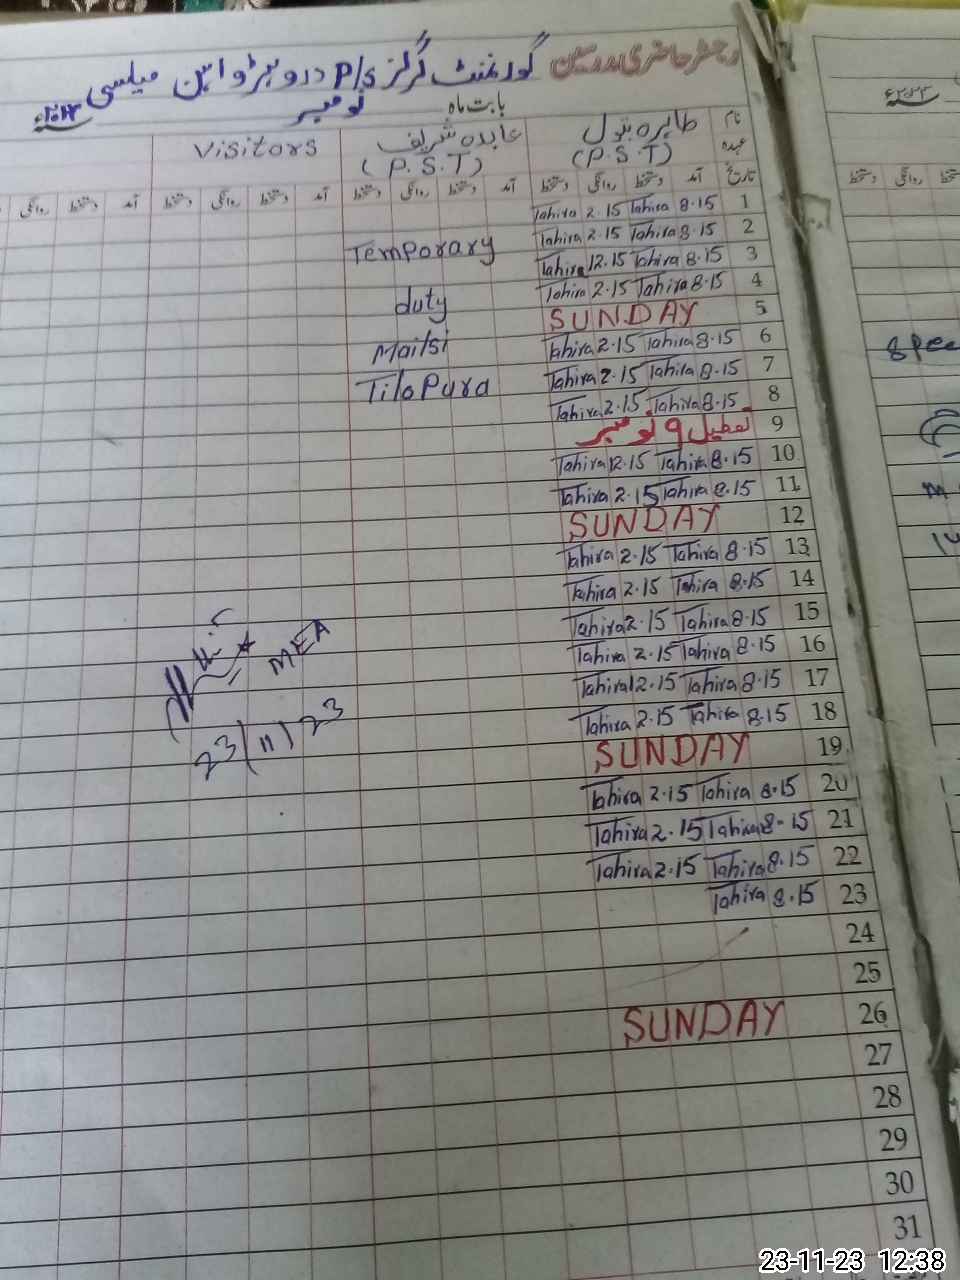 رجسٹر حاضری مدرسین گورنمنٹ گرلز P/S دروہڑ واہن میلسی
بابت ماہ نومبر ۲۰۲۳ء
نام طاہرہ بتول عابدہ شریف Visitors
عہدہ (P.S.T) (P.S.T)
تاریخ آمد دستخط روانگی دستخط آمد دستخط روانگی دستخط آمد دستخط روانگی دستخط آمد دستخط روانگی
1 Tahira 2.15 Tahira 8.15
2 Tahira 2.15 Tahira 8.15
Temporary
3 Tahira 12.15 Tahira 8.15
4 Tahira 2.15 Tahira 8.15
duty
5 SUNDAY
6 Tahira 2.15 Tahira 8.15
Mailsi
7 Tahira 2.15 Tahira 8.15
Tilo Pura
8 Tahira 2.15 Tahira 8.15
9 تعطیل 9 نومبر
10 Tahira 12.15 Tahira 8.15
11 Tahira 2.15 Tahira 8.15
12 SUNDAY
13 Tahira 2.15 Tahira 8.15
14 Tahira 2.15 Tahira 8.15
15 Tahira 2.15 Tahira 8.15
16 Tahira 2.15 Tahira 8.15
17 Tahira 12.15 Tahira 8.15
18 Tahira 2.15 Tahira 8.15
MEA
23/11/23
19 SUNDAY
20 Tahira 2.15 Tahira 8.15
21 Tahira 2.15 Tahira 8.15
22 Tahira 2.15 Tahira 8.15
23 Tahira 8.15
24
25
26 SUNDAY
27
28
29
30
31
۲۰۲۳ء
دستخط روانگی دستخط
spee
23-11-23 12:38